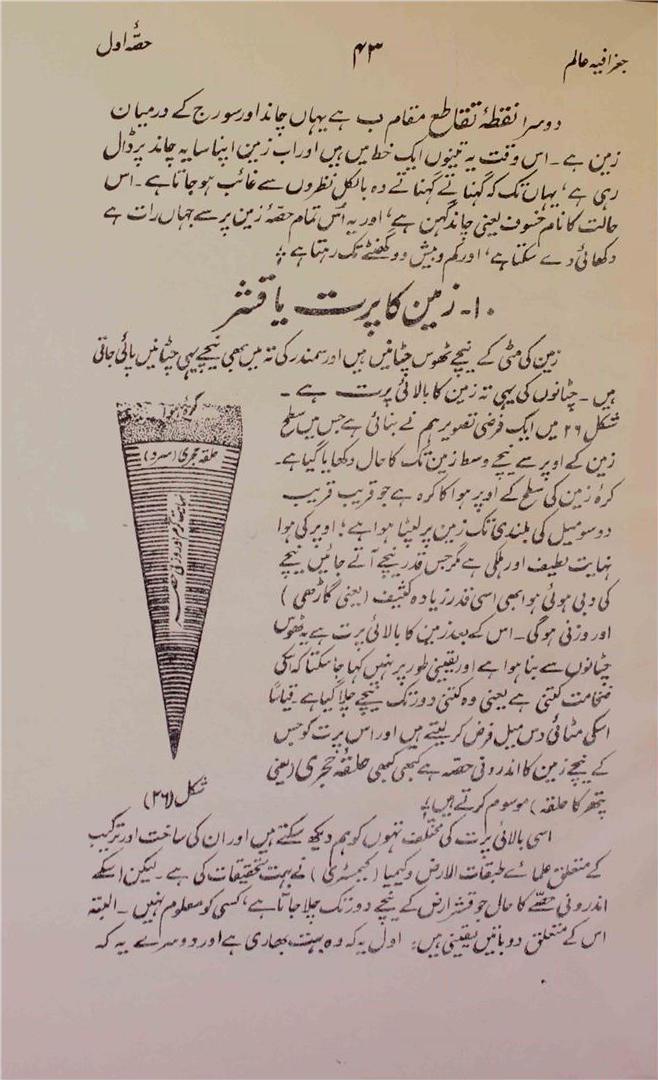 جغرافیہ عالم
۴۳
حصّۂ اول
دوسرا نقطۂ تقاطع مقام ب ہے یہاں چاند اور سورج کے درمیان
زمین ہے۔ اس وقت یہ تینوں ایک خط میں ہیں اور اب زمین اپنا سایہ چاند پر ڈال
رہی ہے، یہاں تک کہ گہناتے گہناتے وہ بالکل نظروں سے غائب ہو جاتا ہے۔ اس
حالت کا نام خسوف یعنی چاند گہن ہے، اور یہ اُس تمام حصّۂ زمین پر سے جہاں رات ہے
دکھائی دے سکتا ہے، اور کم و بیش دو گھنٹے تک رہتا ہے ؞
۱۰۔ زمین کا پرت یا قشر
زمین کی مٹی کے نیچے ٹھوس چٹانیں ہیں اور سمندر کی تہ میں بھی نیچے یہی چٹانیں پائی جاتی
ہیں۔ چٹانوں کی یہی تہ زمین کا بالائی پرت ہے۔
شکل ۲۶ میں ایک فرضی تصویر ہم نے بنائی ہے جس میں سطح
زمین کے اوپر سے نیچے وسط زمین تک کا حال دکھایا گیا ہے۔
کرۂ زمین کی سطح کے اوپر ہوا کا کرہ ہے جو قریب قریب
دو سو میل کی بلندی تک زمین پر لپٹا ہوا ہے؛ اوپر کی ہوا
نہایت لطیف اور ہلکی ہے مگر جس قدر نیچے آتے جائیں نیچے
کی دبی ہوئی ہوا بھی اسی قدر زیادہ کثیف (یعنی گاڑھی)
اور وزنی ہوگی۔ اس کے بعد زمین کا بالائی پرت ہے یہ ٹھوس
چٹانوں سے بنا ہوا ہے اور یقینی طور پر نہیں کہا جا سکتا کہ اسکی
ضخامت کتنی ہے یعنی وہ کتنی دور تک نیچے چلا گیا ہے۔ قیاساً
اسکی مٹائی دس میل فرض کر لیتے ہیں اور اس پرت کو جس
کے نیچے زمین کا اندرونی حصہ ہے کبھی کبھی حلقۂ حجری (یعنی
پتھر کا حلقہ) موسوم کرتے ہیں ؞
کرۂ ہوا
حلقہ حجری (سرد)
نہایت گرم اور وزنی حصہ
شکل (۲۶)
اسی بالائی پرت کی مختلف تہوں کو ہم دیکھ سکتے ہیں اور ان کی ساخت اور ترکیب
کے متعلق علمائے طبقات الارض و کیمیا (کیمسٹری) نے بہت تحقیقات کی ہے۔ لیکن اسکے
اندرونی حصّے کا حال جو قشر ارض کے نیچے دور تک چلا جاتا ہے، کسی کو معلوم نہیں۔ البتہ
اس کے متعلق دو باتیں یقینی ہیں: اول یہ کہ وہ بہت بھاری ہے اور دوسرے یہ کہ